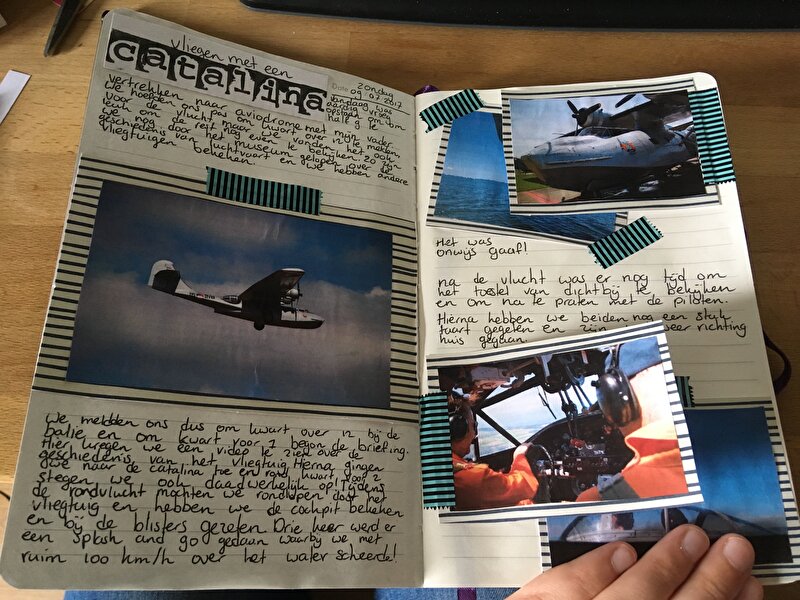 vliegen met een
catalina
Date
zondag
09 07 2017
vandaag was
aardig vroeg
opstaan om om
half 9 te
vertrekken naar aviodrome met mijn vader.
we hoefden ons pas om kwart over 12 te melden
voor de vlucht maar we vonden het ook
leuk om de rest nog even te bekijken. zo zijn
we nog door het museum gelopen over de
geschiedenis van luchtvaart en we hebben andere
vliegtuigen bekeken.
We meldden ons dus om kwart over 12 bij de
balie en om kwart voor 1 begon de briefing.
Hier kregen we een video te zien over de
geschiedenis van het vliegtuig. Hierna gingen
we naar de catalina toe en rond kwart voor 2
stegen we ook daadwerkelijk op! Tijdens
de rondvlucht mochten we rondlopen door het
vliegtuig en hebben we de cockpit bekeken
en bij de blisters gezeten. Drie keer werd er
een splash and go gedaan waarbij we met
ruim 100 km/h over het water scheerde!
Het was
onwijs gaaf!
na de vlucht was er nog tijd om
het toestel van dichtbij te bekijken
en om na te praten met de piloten.
Hierna hebben we beiden nog een stuk
taart gegeten en zijn weer richting
huis gegaan.